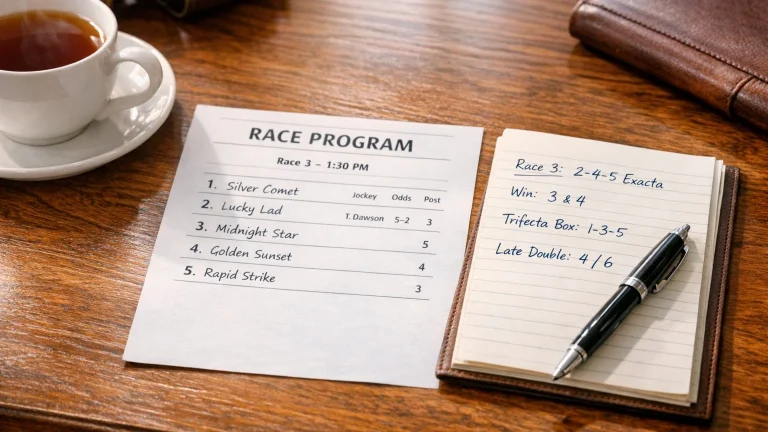 RACE PROGRAM
Race 3 – 1:30 PM
1. Silver Comet Jockey Odds Post
2. Lucky Lad T. Dawson 5-2 3
3. Midnight Star 5
4. Golden Sunset 4
5. Rapid Strike 3
Race 3: 2-4-5 Exacta
Win: 3 & 4
Trifecta Box: 1-3-5
Late Double: 4 / 6